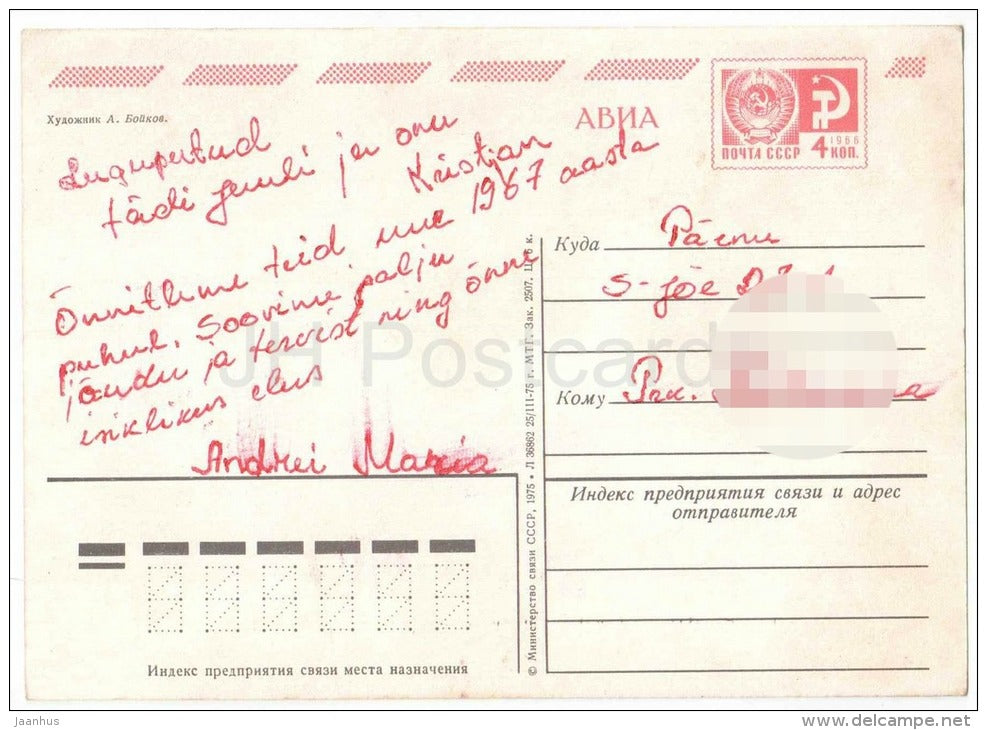 Художник А. Бойков.
АВИА
ПОЧТА СССР 4 КОП.
1966
Lugupeetud
tädi ja onu
Kristjan
Õnnitleme teid uue 1967 aasta
puhul. Soovime palju
jõudu ja tervist ning õnne
isiklikus elus
Andrei Maria
Куда Pärnu
S-Jõe
Кому Prk.
Индекс предприятия связи и адрес
отправителя
Индекс предприятия связи места назначения
© Министерство связи СССР, 1975 • Л 36862 25/III-75 г. МТГ. Зак. 2507. Ц. 6 к.
JH Postcards
Jaanhus
www.delcampe.net